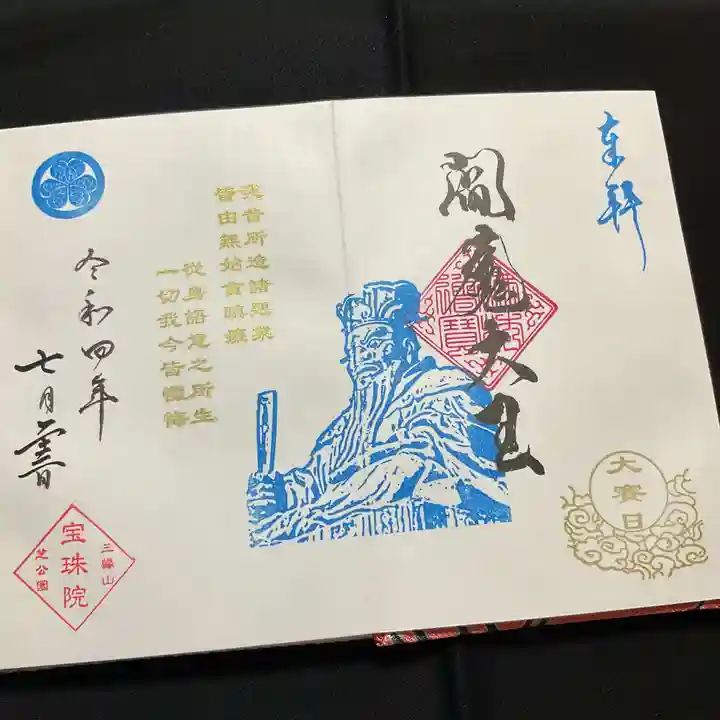 奉拝
閻魔大王
大賽日
我昔所造諸悪業
皆由無始貪瞋癡
從身語意之所生
一切我今皆懺悔
令和四年
七月
三縁山
宝珠院
芝公園